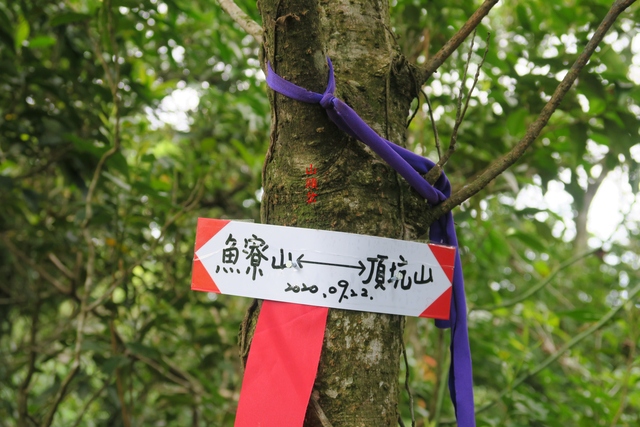 魚寮山↔頂坑山
2020.09.23.